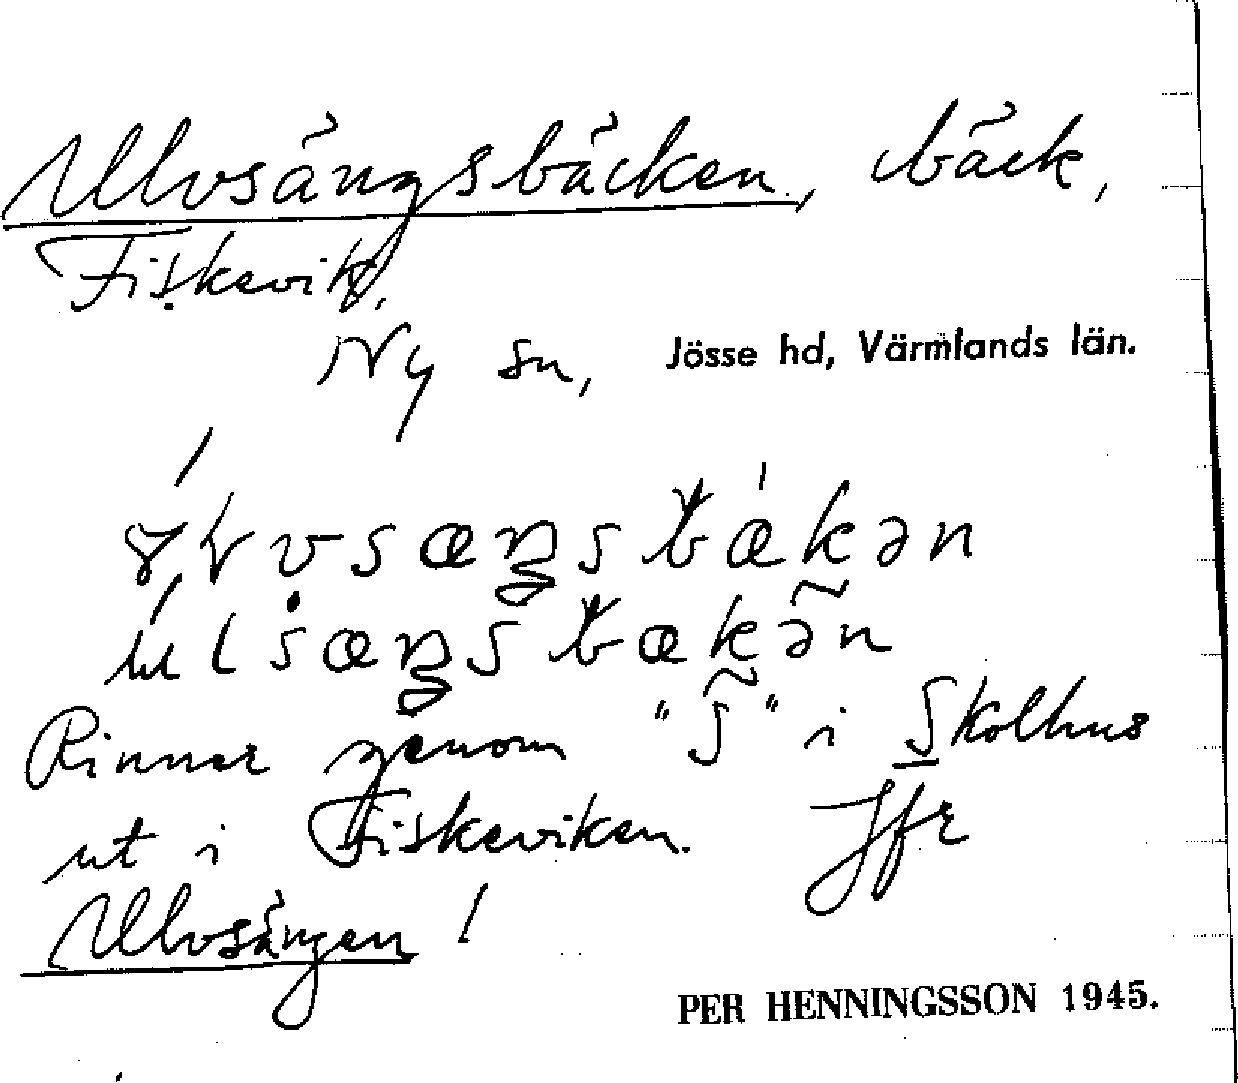 Ulvsängsbäcken, bäck,
Fiskevik,
Ny sn, Jösse hd, Värmlands län.
Rinner genom "S" i Skolhus
ut i Fiskeviken. Jfr
Ulvsängen!
PER HENNINGSSON 1945.